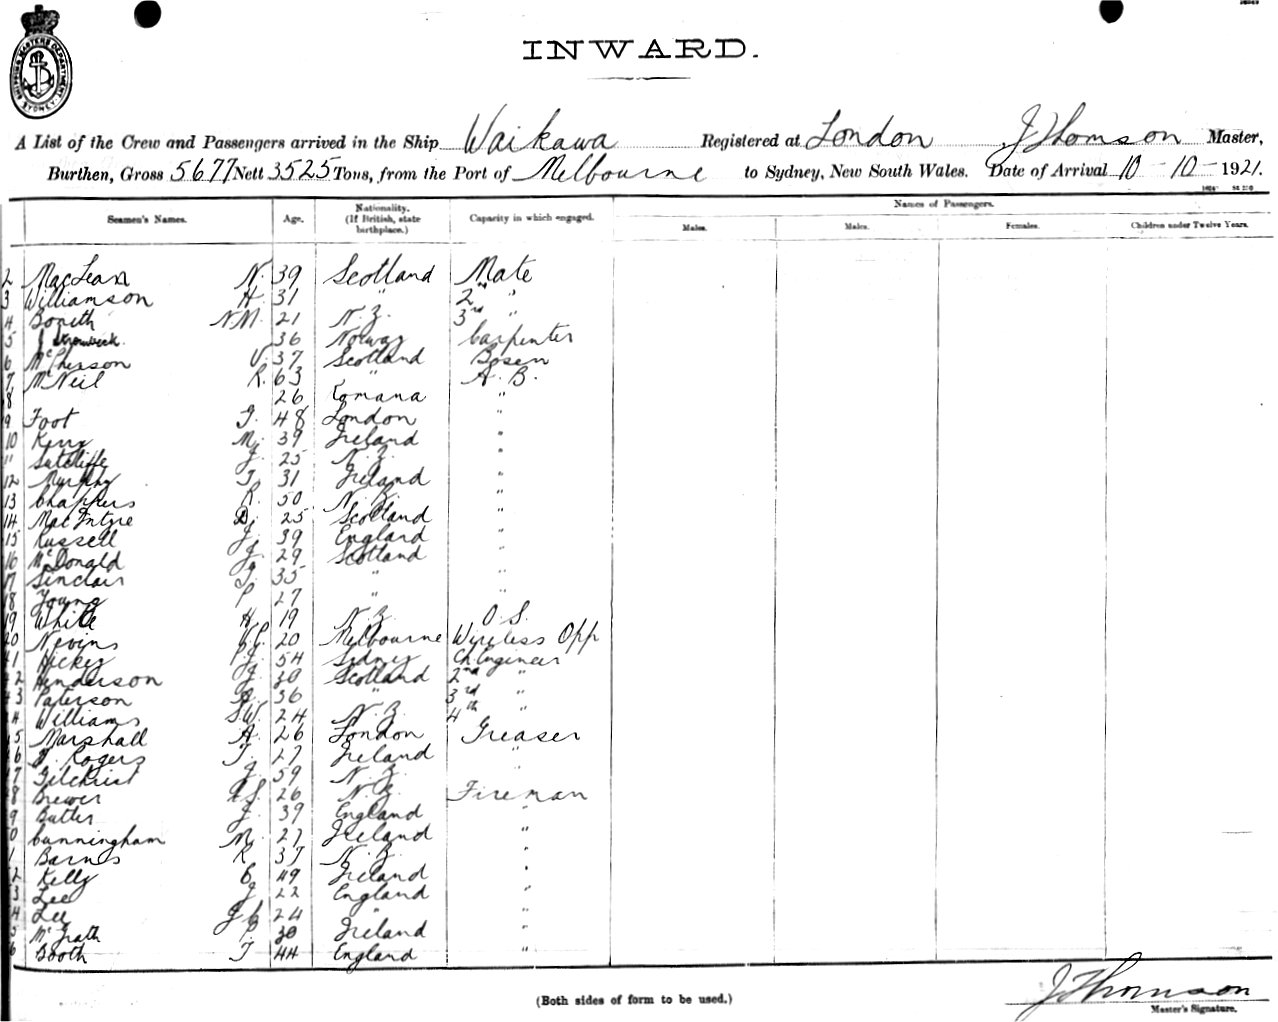 SHIPPING MASTERS DEPARTMENT SYDNEY
INWARD.
A List of the Crew and Passengers arrived in the Ship Waikawa Registered at London J Thomson Master,
Burthen, Gross 5677 Nett 3525 Tons, from the Port of Melbourne to Sydney, New South Wales. Date of Arrival 10 - 10 - 1921.
Names of Passengers.
Seamen's Names. Age. Nationality. (If British, state birthplace.) Capacity in which engaged. Males. Males. Females. Children under Twelve Years.
2 MacLean N. 39 Scotland Mate
3 Williamson H. 31 " 2nd "
4 N.M. 21 N.Z. 3rd "
5 J 36 Norway Carpenter
6 McPherson 37 Scotland Bosen
7 McNeil R. 63 " A.B.
8 26 "
9 Foot 48 London "
10 Kerry M. 39 Ireland "
11 Sutcliffe J. 25 N.Z. "
12 Murphy T. 31 Ireland "
13 R. 50 N.Z. "
14 MacIntyre D. 25 Scotland "
15 Russell J. 39 England "
16 McDonald J. 29 Scotland "
17 Sinclair 35 " "
18 Young P. 27 " "
19 White H. 19 N.Z. O.S.
20 Nevins 20 Melbourne Wireless Opp
21 Hickey 54 Sidney Ch. Engineer
2 Henderson J. 30 Scotland 2nd "
3 Paterson A. 36 " 3rd "
4 Williams S.W. 24 N.Z. 4th "
5 Marshall A. 26 London Greaser
6 Rogers T. 27 Ireland "
7 Gilchrist J. 59 N.Z.
8 Brewer 26 N.Z. Fireman
9 Butler J. 39 England "
0 Cunningham M. 27 Ireland "
1 Barnes R. 37 N.Z. "
2 Kelly C. 49 Ireland "
3 Lee J. 22 England "
4 Lee J.C. 24 " "
5 McGrath P. 30 Ireland "
6 Booth T 44 England "
(Both sides of form to be used.)
J Thomson
Master's Signature.